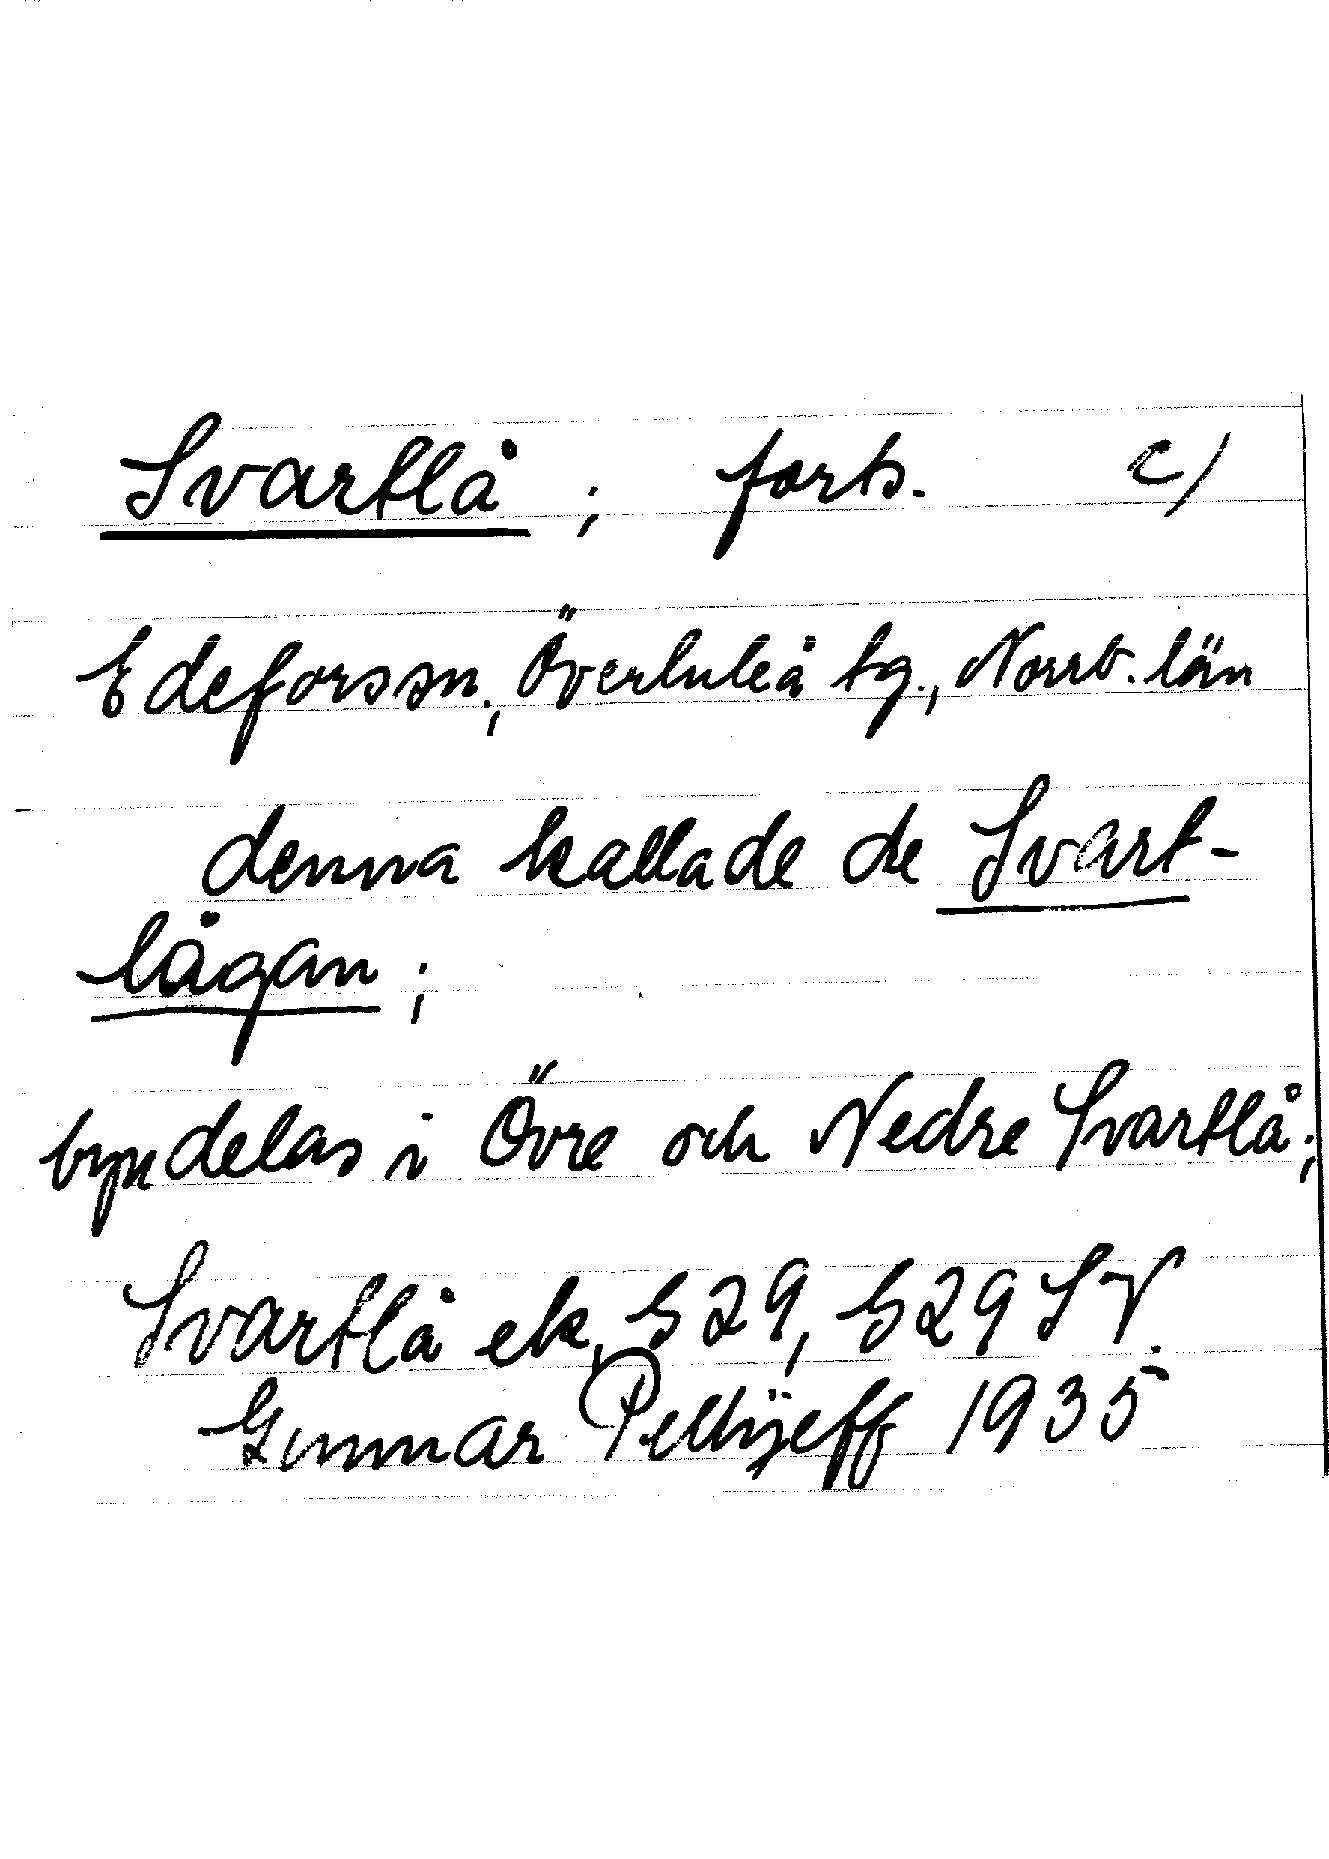 Svartlå ; forts. c)
Edefors sn., Överluleå tg., Norrb. län
denna kallade de Svart-
lågan ;
byn delas i Övre och Nedre Svartlå;
Svartlå ek, S 29, S 29 SV.
Gunnar Pellijeff 1935